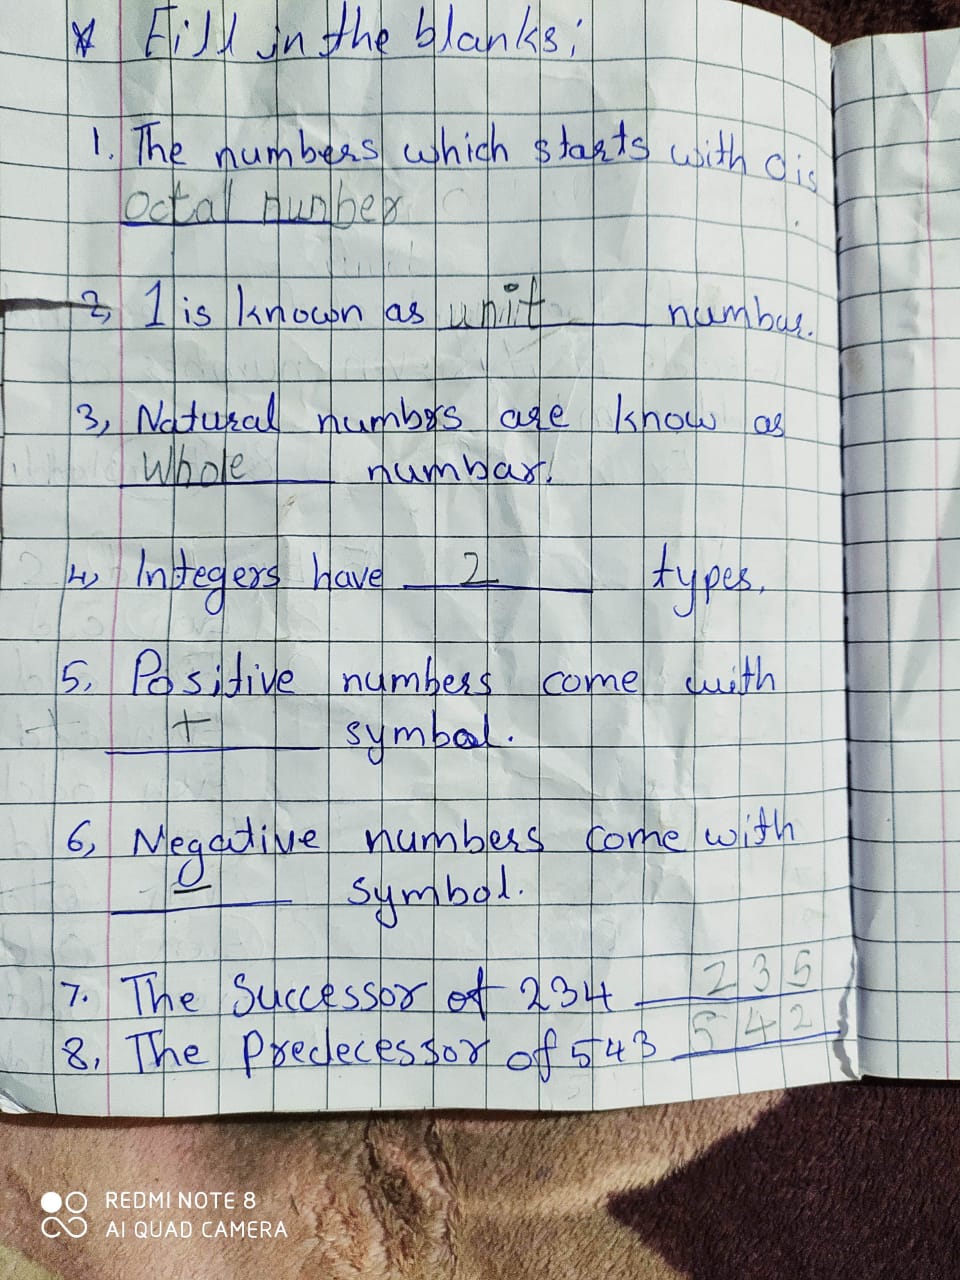 * Fill in the blanks;
1. The numbers which starts with 0 is
octal number.
2, 1 is known as unit numbar.
3, Natural numbrs are know as
Whole numbar.
4, Integers have 2 types.
5, Positive numbers come with
+ symbol.
6, Negative numbers come with
– symbol.
7. The Successor of 234 235
8, The Predecessor of 543 542
REDMI NOTE 8
AI QUAD CAMERA